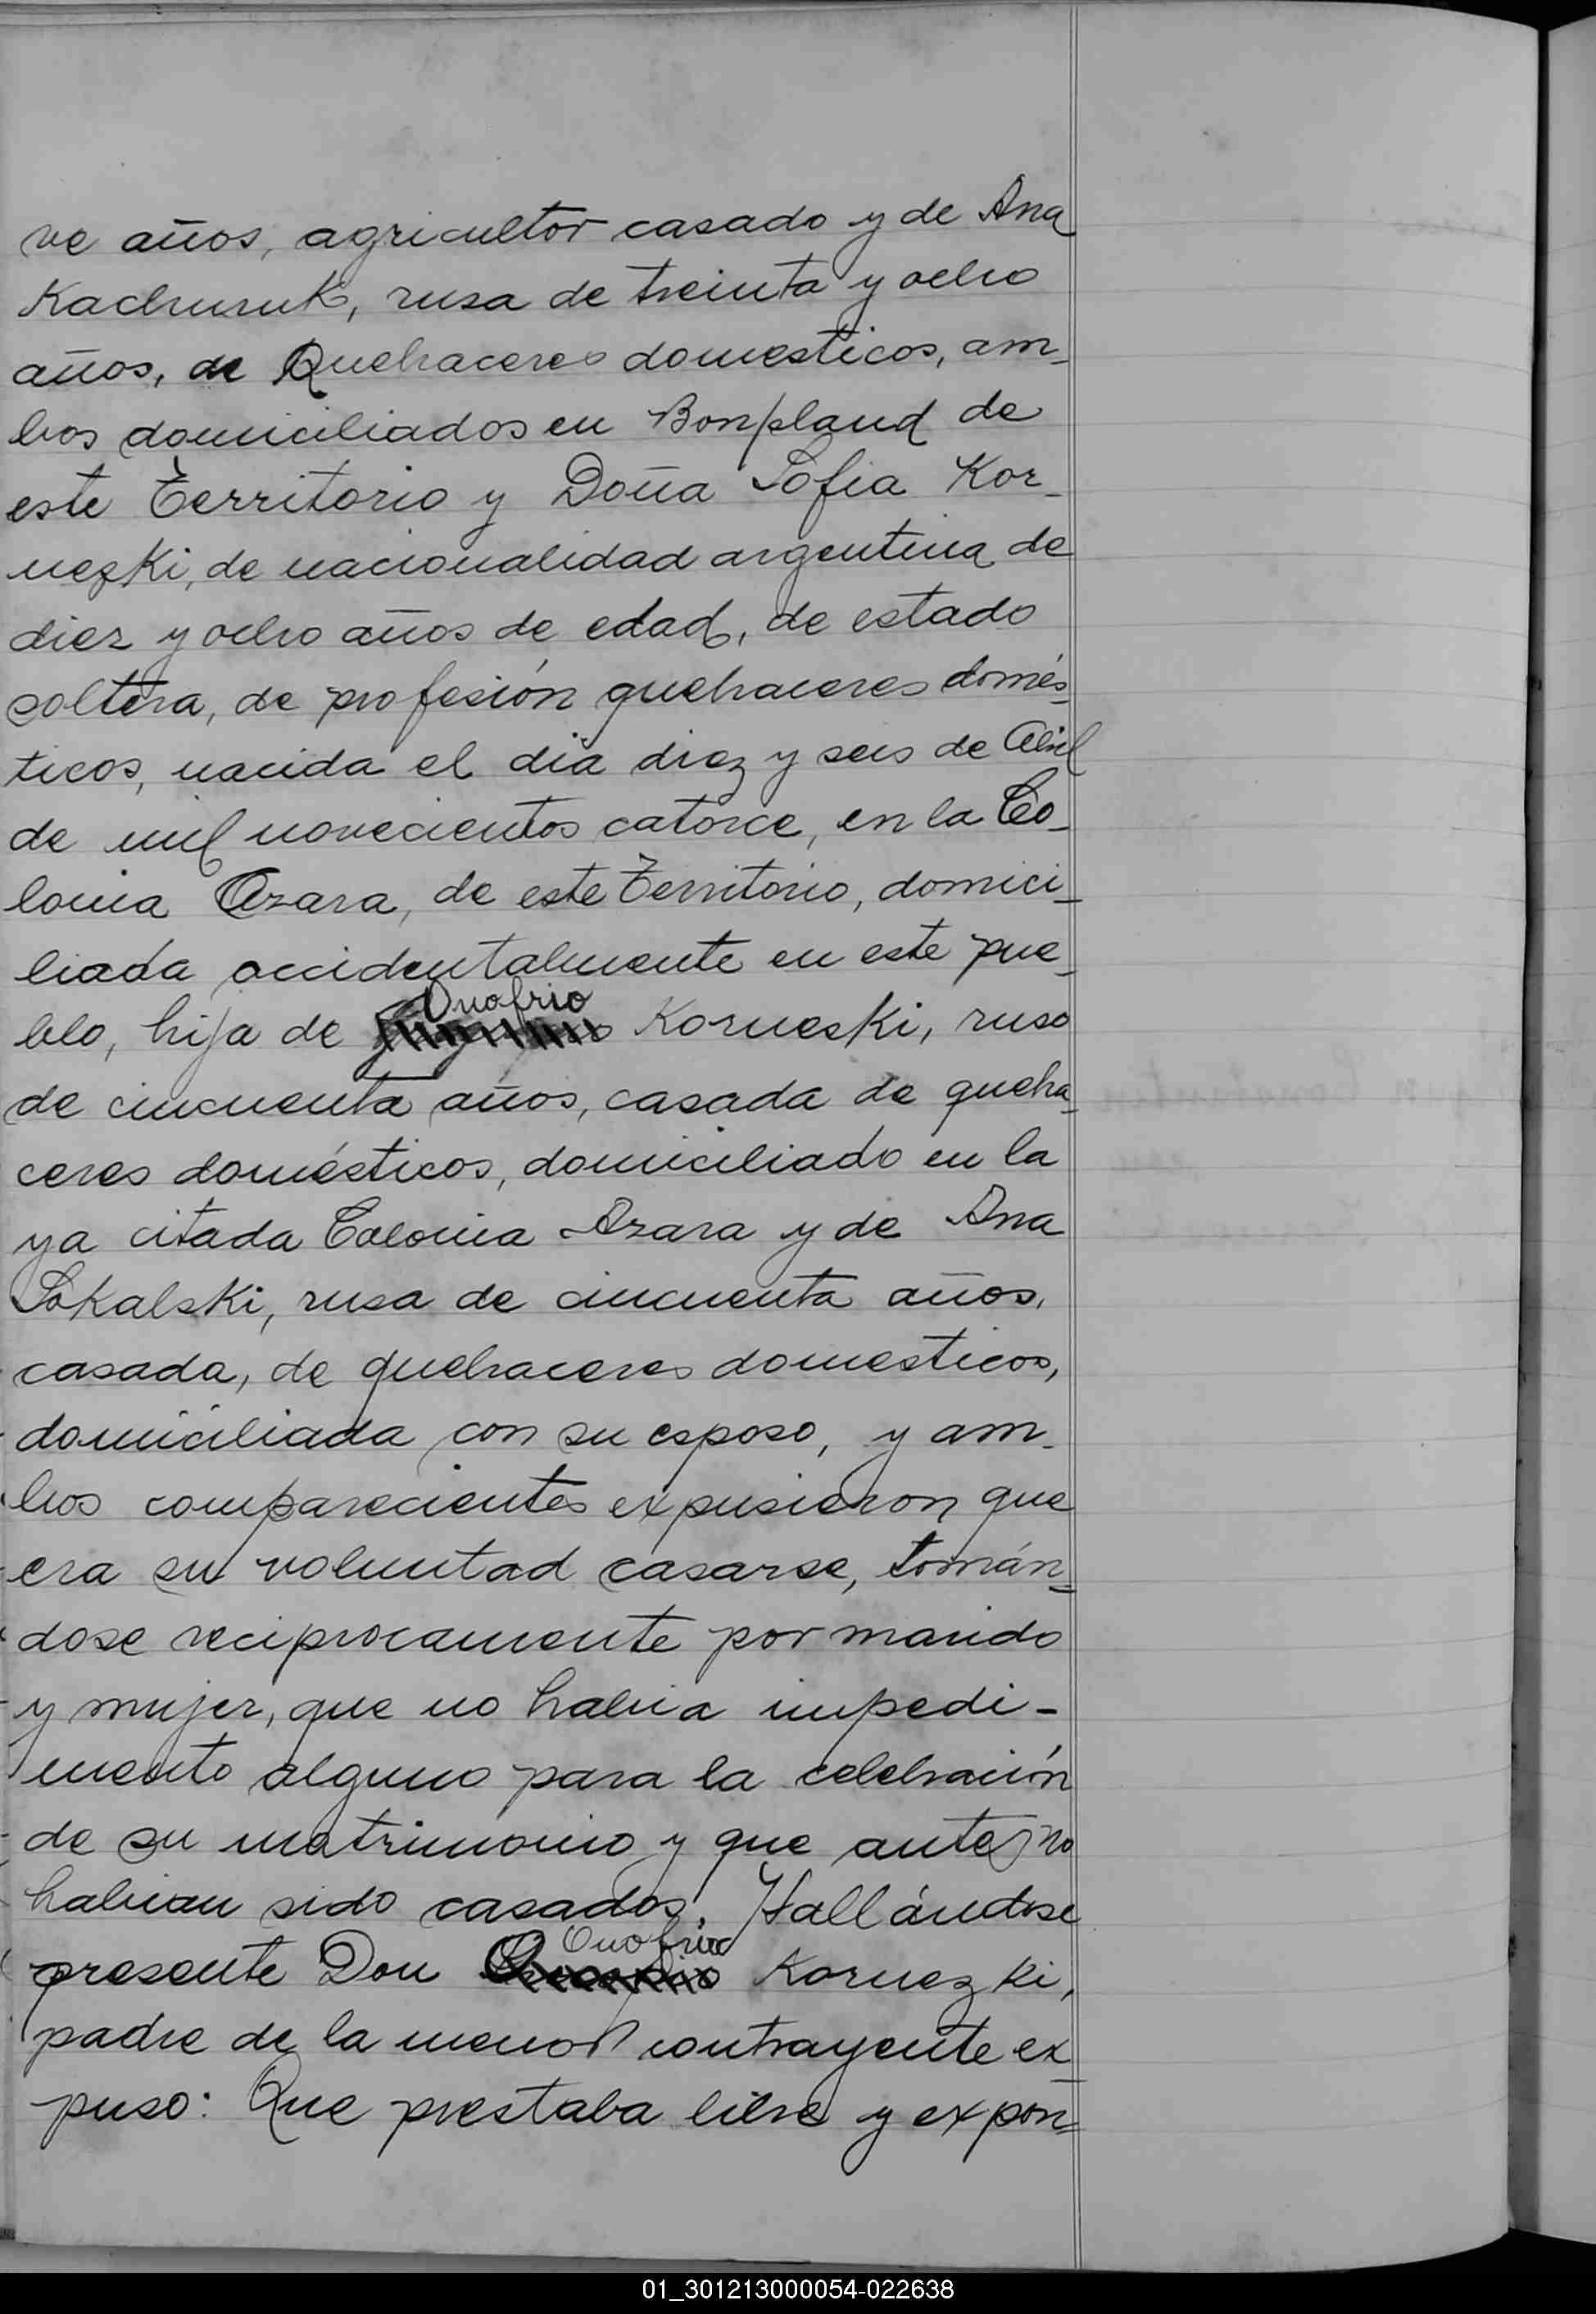 ve años, agricultor casado y de Ana
Kachuruk, rusa de treinta y ocho
años, de Quehaceres domesticos, am-
bos domiciliados en Bonpland de
este Territorio y Doña Sofia Kor-
nezki, de nacionalidad argentina de
diez y ocho años de edad, de estado
soltera, de profesión quehaceres domés-
ticos, nacida el dia diez y seis de Abril
de mil novecientos catorce, en la Co-
lonia Azara, de este Territorio, domici-
liada accidentalmente en este pue-
Onofrio
blo, hija de Korneski, ruso
de cincuenta años, casada de queha-
ceres domésticos, domiciliado en la
ya citada Colonia Azara y de Ana
Sokalski, rusa de cincuenta años,
casada, de quehaceres domesticos,
domiciliada con su esposo, y am-
bos comparecientes expusieron que
era su voluntad casarse, tomán-
dose reciprocamente por marido
y mujer, que no habia impedi-
mento alguno para la celebración
de su matrimonio y que antes no
habian sido casados. Hallándose
Onofrio
presente Don Kornezki,
padre de la menor contrayente ex-
puso: Que prestaba libre y expon-
01_301213000054-022638